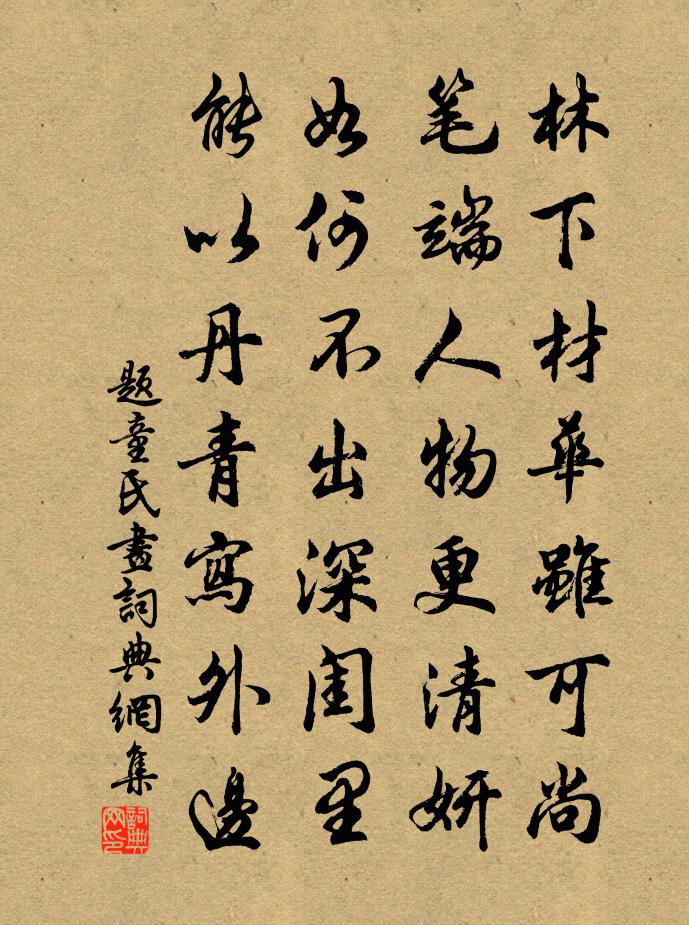 林下材華雖可尚
笔端人物更清妍
如何不出深闺里
能以丹青寫外邊
题童氏畫詞典網集
詞典网印